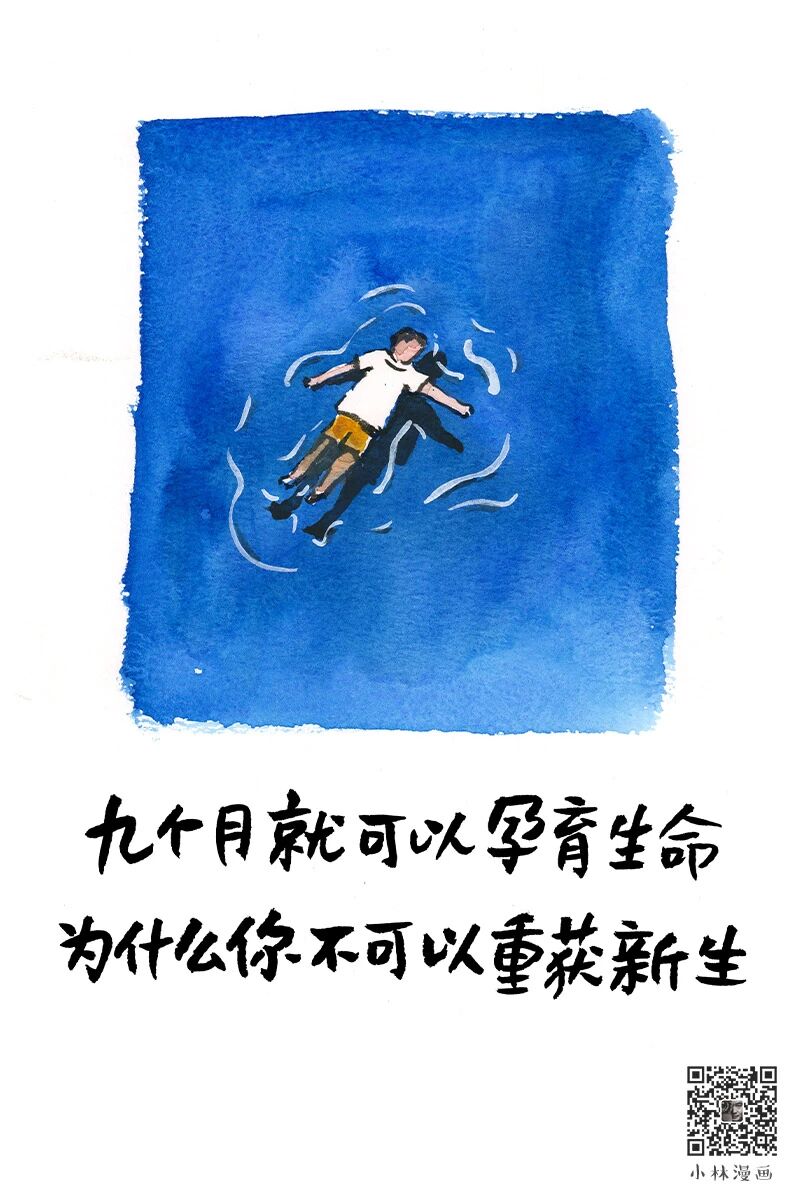 九个月就可以孕育生命
为什么你不可以重获新生
小林漫画